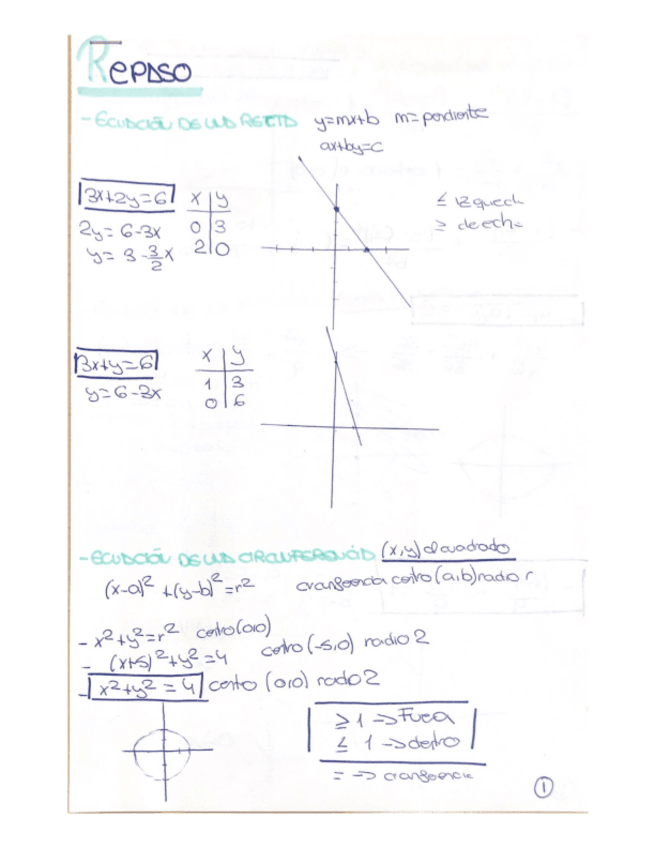 REPASO
- ECUACIÓN DE UNA RECTA y=mx+b m=pendiente
ax+by=c
3x+2y=6 x | y
2y= 6-3x 0 | 3
y= 3-3/2x 2 | 0
≤ izquech
≥ deecha
3x+y=6 x | y
y=6-3x 1 | 3
0 | 6
- ECUACIÓN DE UNA CIRCUNFERENCIA (x,y) al cuadrado
(x-a)² +(y-b)²=r² circunferencia centro (a,b) radio r
- x²+y²=r² centro (0,0)
- (x+5)²+y²=4 centro (-5,0) radio 2
- x²+y² = 4 centro (0,0) radio 2
≥ 1 -> Fuera
≤ 1 -> dentro
= -> circunferencia
1